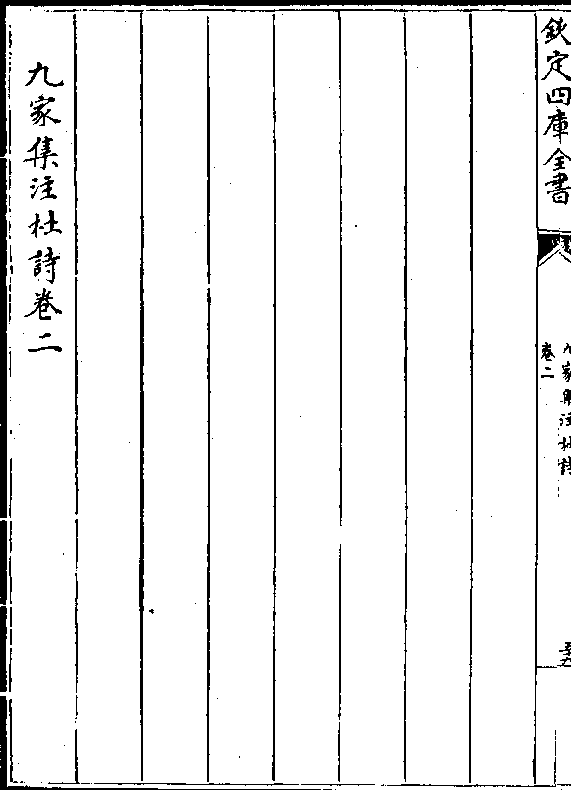 欽定四庫全書
九家集注杜詩
卷二
九家集注杜詩卷二